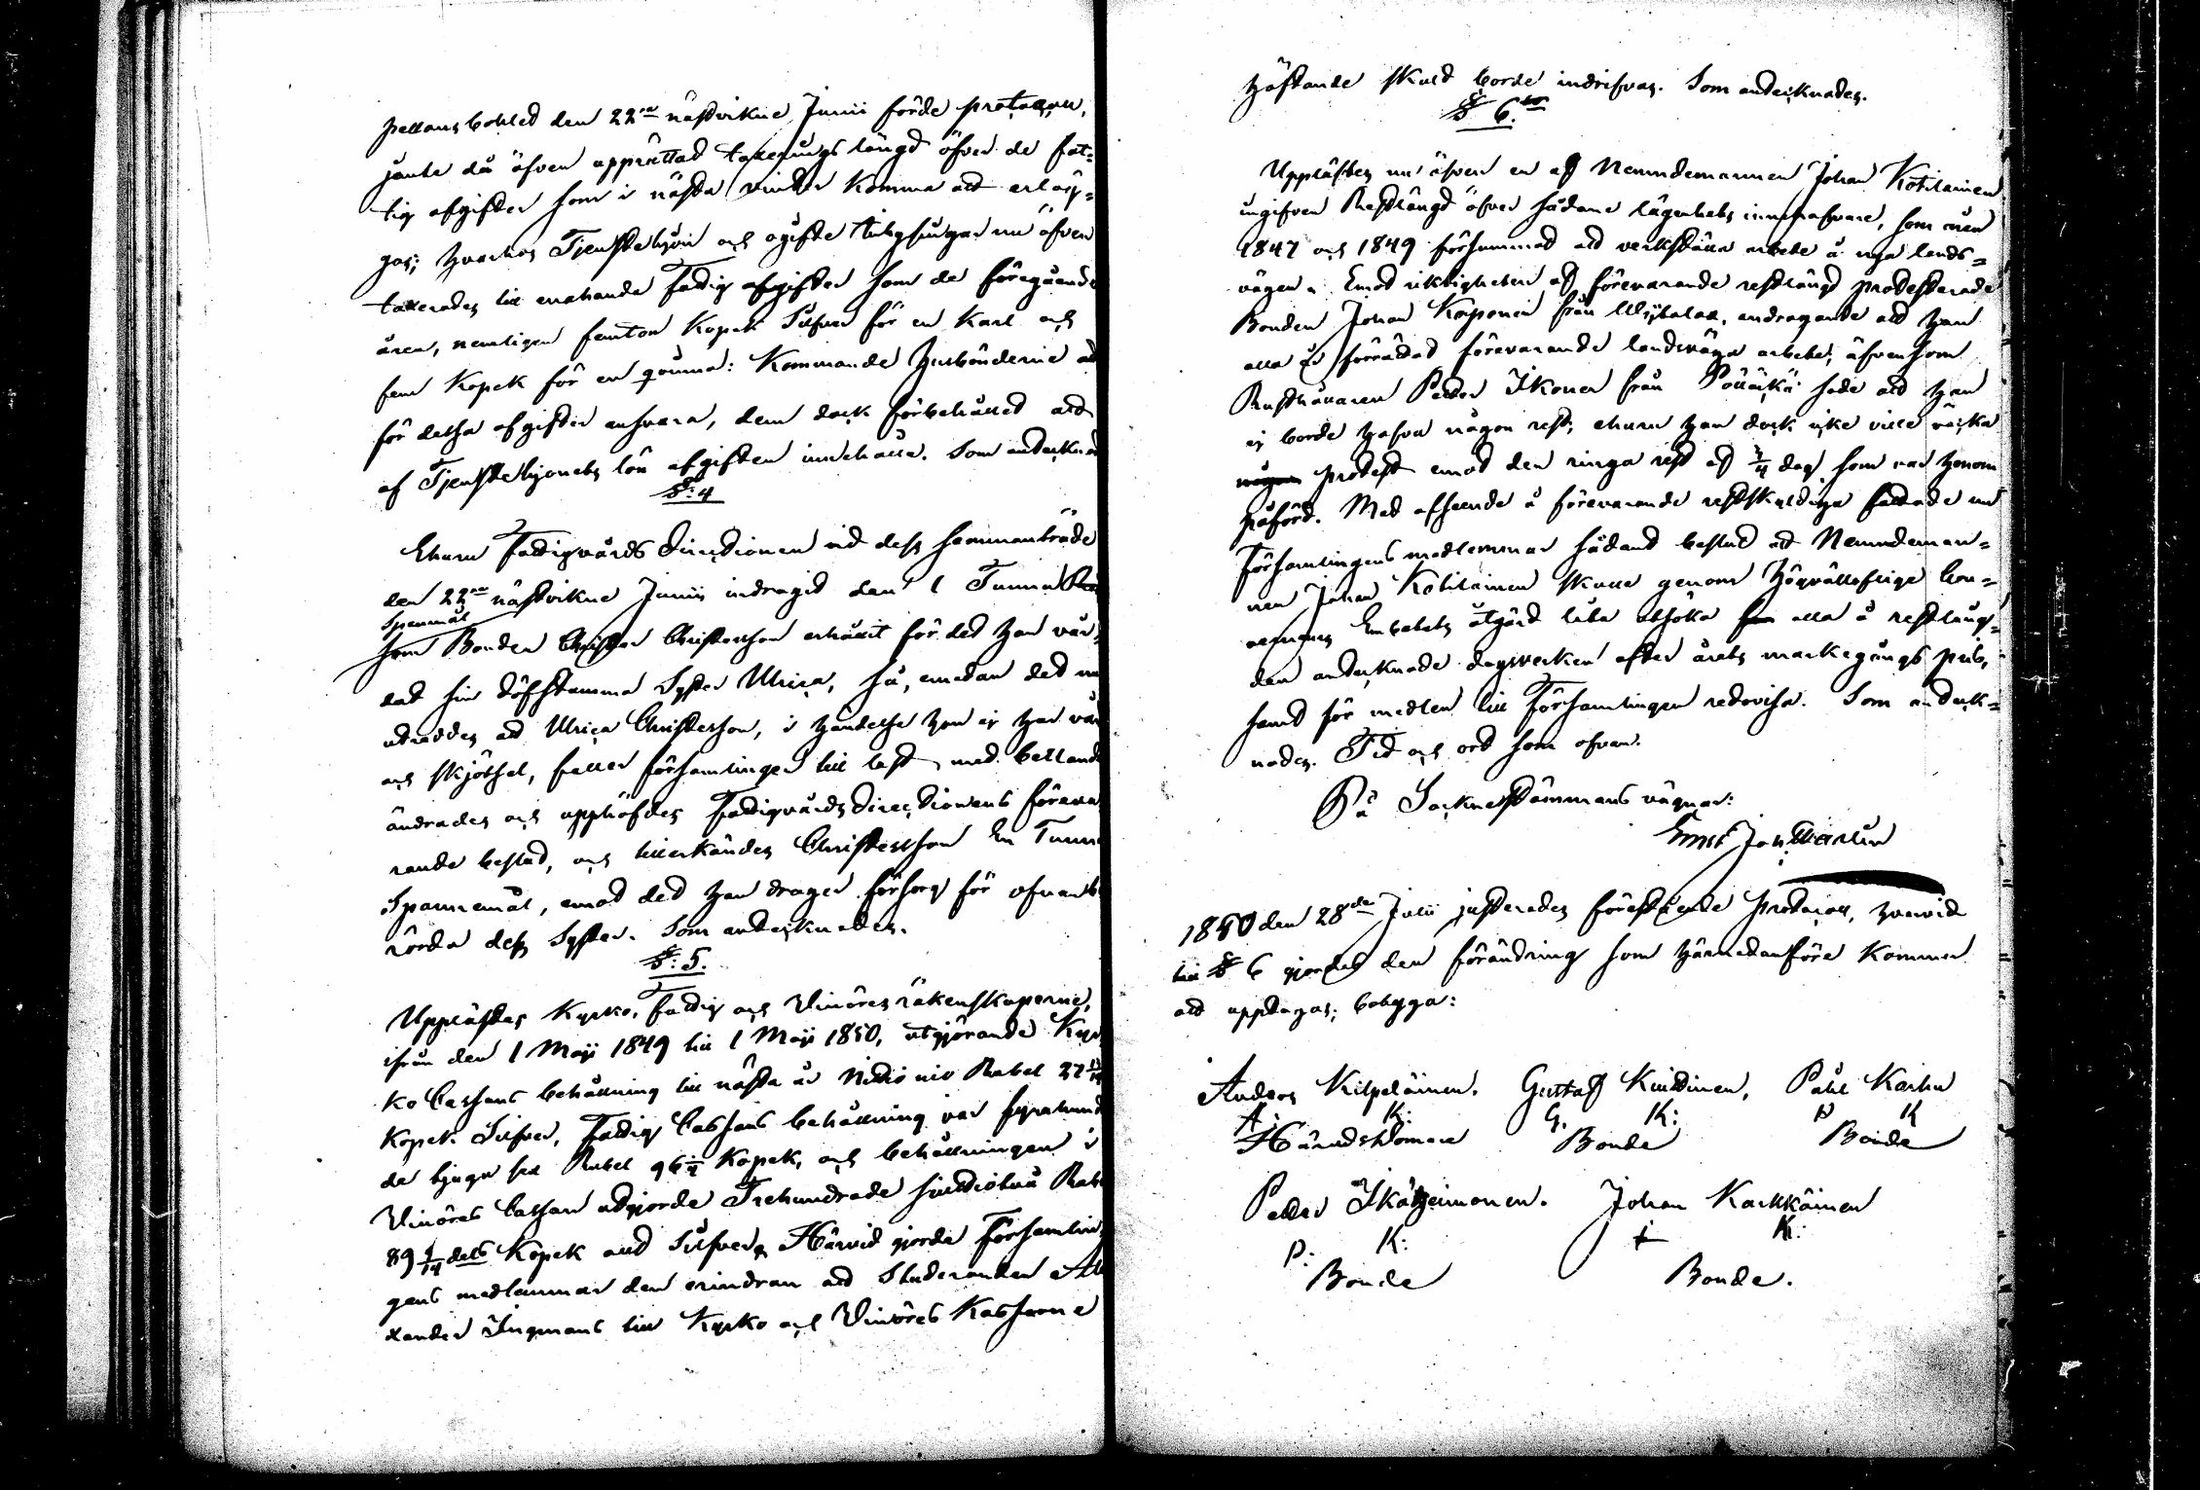 pellans bohled den 22ne nästvikne Junii förde protocoll,
jemte då äfven upprättad taxerings längd öfver de fat=
tig afgifter som i nästa vinter komma att erläg=
gas; hvarhos Tjenstehjon och ogifte ynglingar nu äfven
taxerades till enahanda Fattig afgifter som de föregående
åren, nemligen femton Kopek Silfver för en Karl och
fem Kopek för en qvinna: Kommande Husbönderne att
för dessa afgifter ansvara, dem dock förbehållet att
af Tjenstehjonets lön afgiften innehålla. Som antecknad
§: 4
Ehuru Fattigvårds Directionen vid dess sammanträde
den 22ne nästvikne Junii indragit den 1 Tunna
Spanmål
som Bonden Christer Christersson erhållit för det han vår=
dat sin döfstumma Syster Ulrica, så, emedan det nu
utreddes att Ulrica Christersson, i händelse hon ej har vård
och skjötsel, faller församlingen till last med bettlande
ändrades och upphöfdes Fattigvårds Directionens föreva
rande beslut, och tillerkändes Christersson En Tunna
Spannemål, emot det han drager försorg för ofvanbe
rörda dess Syster. Som antecknades.
§: 5.
Upplästes Kyrko, Fattig och Vinöres räkenskaperne,
ifrån den 1 Maji 1849 till 1 Maji 1850, utgjörande Kyr
ko Cassans behållning till nästa år Nittio nio Rubel 27
Kopek Silfver, Fattig Cassans behållning var fyrahund
de tjugu sex Rubel 96 1/4 Kopek, och behållningen i
Vinöres Cassan utgjorde Trehundrade sjuttiotvå Rub
89 1/14 dels Kopek allt Silfver. Härvid gjorde Församlin
gens medlemmar den erindran att Studeranden Alex
xander Ingmans till Kyrko och Vinöres Kassorne
häftande skuld borde indrifvas. Som antecknades.
§ 6.to
Upplästes nu äfven en af Nemndemannen Johan Kotilainen
ingifven Restlängd öfver sådane lägenhets innehafvare, som åren
1847 och 1849 försummat att verkställa arbete å nya lands=
vägen. Emot riktigheten af förevarande restlängd protesterade
Bonden Johan Korponen från, andragande att han
alla år förrättat förevarande landsvägs arbete, äfvensom
Rusthållaren Petter Ikonen från Pölläkkä sade att han
ej borde hafva någon rest, ehuru han dock icke ville väcka
någon protest emot den ringa rest af 3/4 dag som var honom
påförd. Med afseende å förevarande restskyldiga fattade nu
Församlingens medlemmar sådant beslut att Nemndeman=
nen Johan Kotilainen skulle genom Högvällofliga Cro=
nans Embetets åtgärd låta utsöka alla å restläng=
den antecknade dagsverken efter årets markegångs pris,
samt för medlen till Församlingen redovisa. Som anteck=
nades. Tid och ort som ofvan.
På Sockne Stämmans vägnar:
Ernst Joh:
1850 den 28de Julii justerades förestående protocoll, hvarvid
till § 6 gjordes den förändring som härnedanföre kommer
att upptagas; betyga:
Anders Kilpeläinen. Gustaf Kinldinen, Påhl Karhu
A: K: G. K: P K
Häradsdomare Bonde Bonde
Petter Ikäheimonen. Johan Karkkäinen
P: K: + K:
Bonde Bonde.